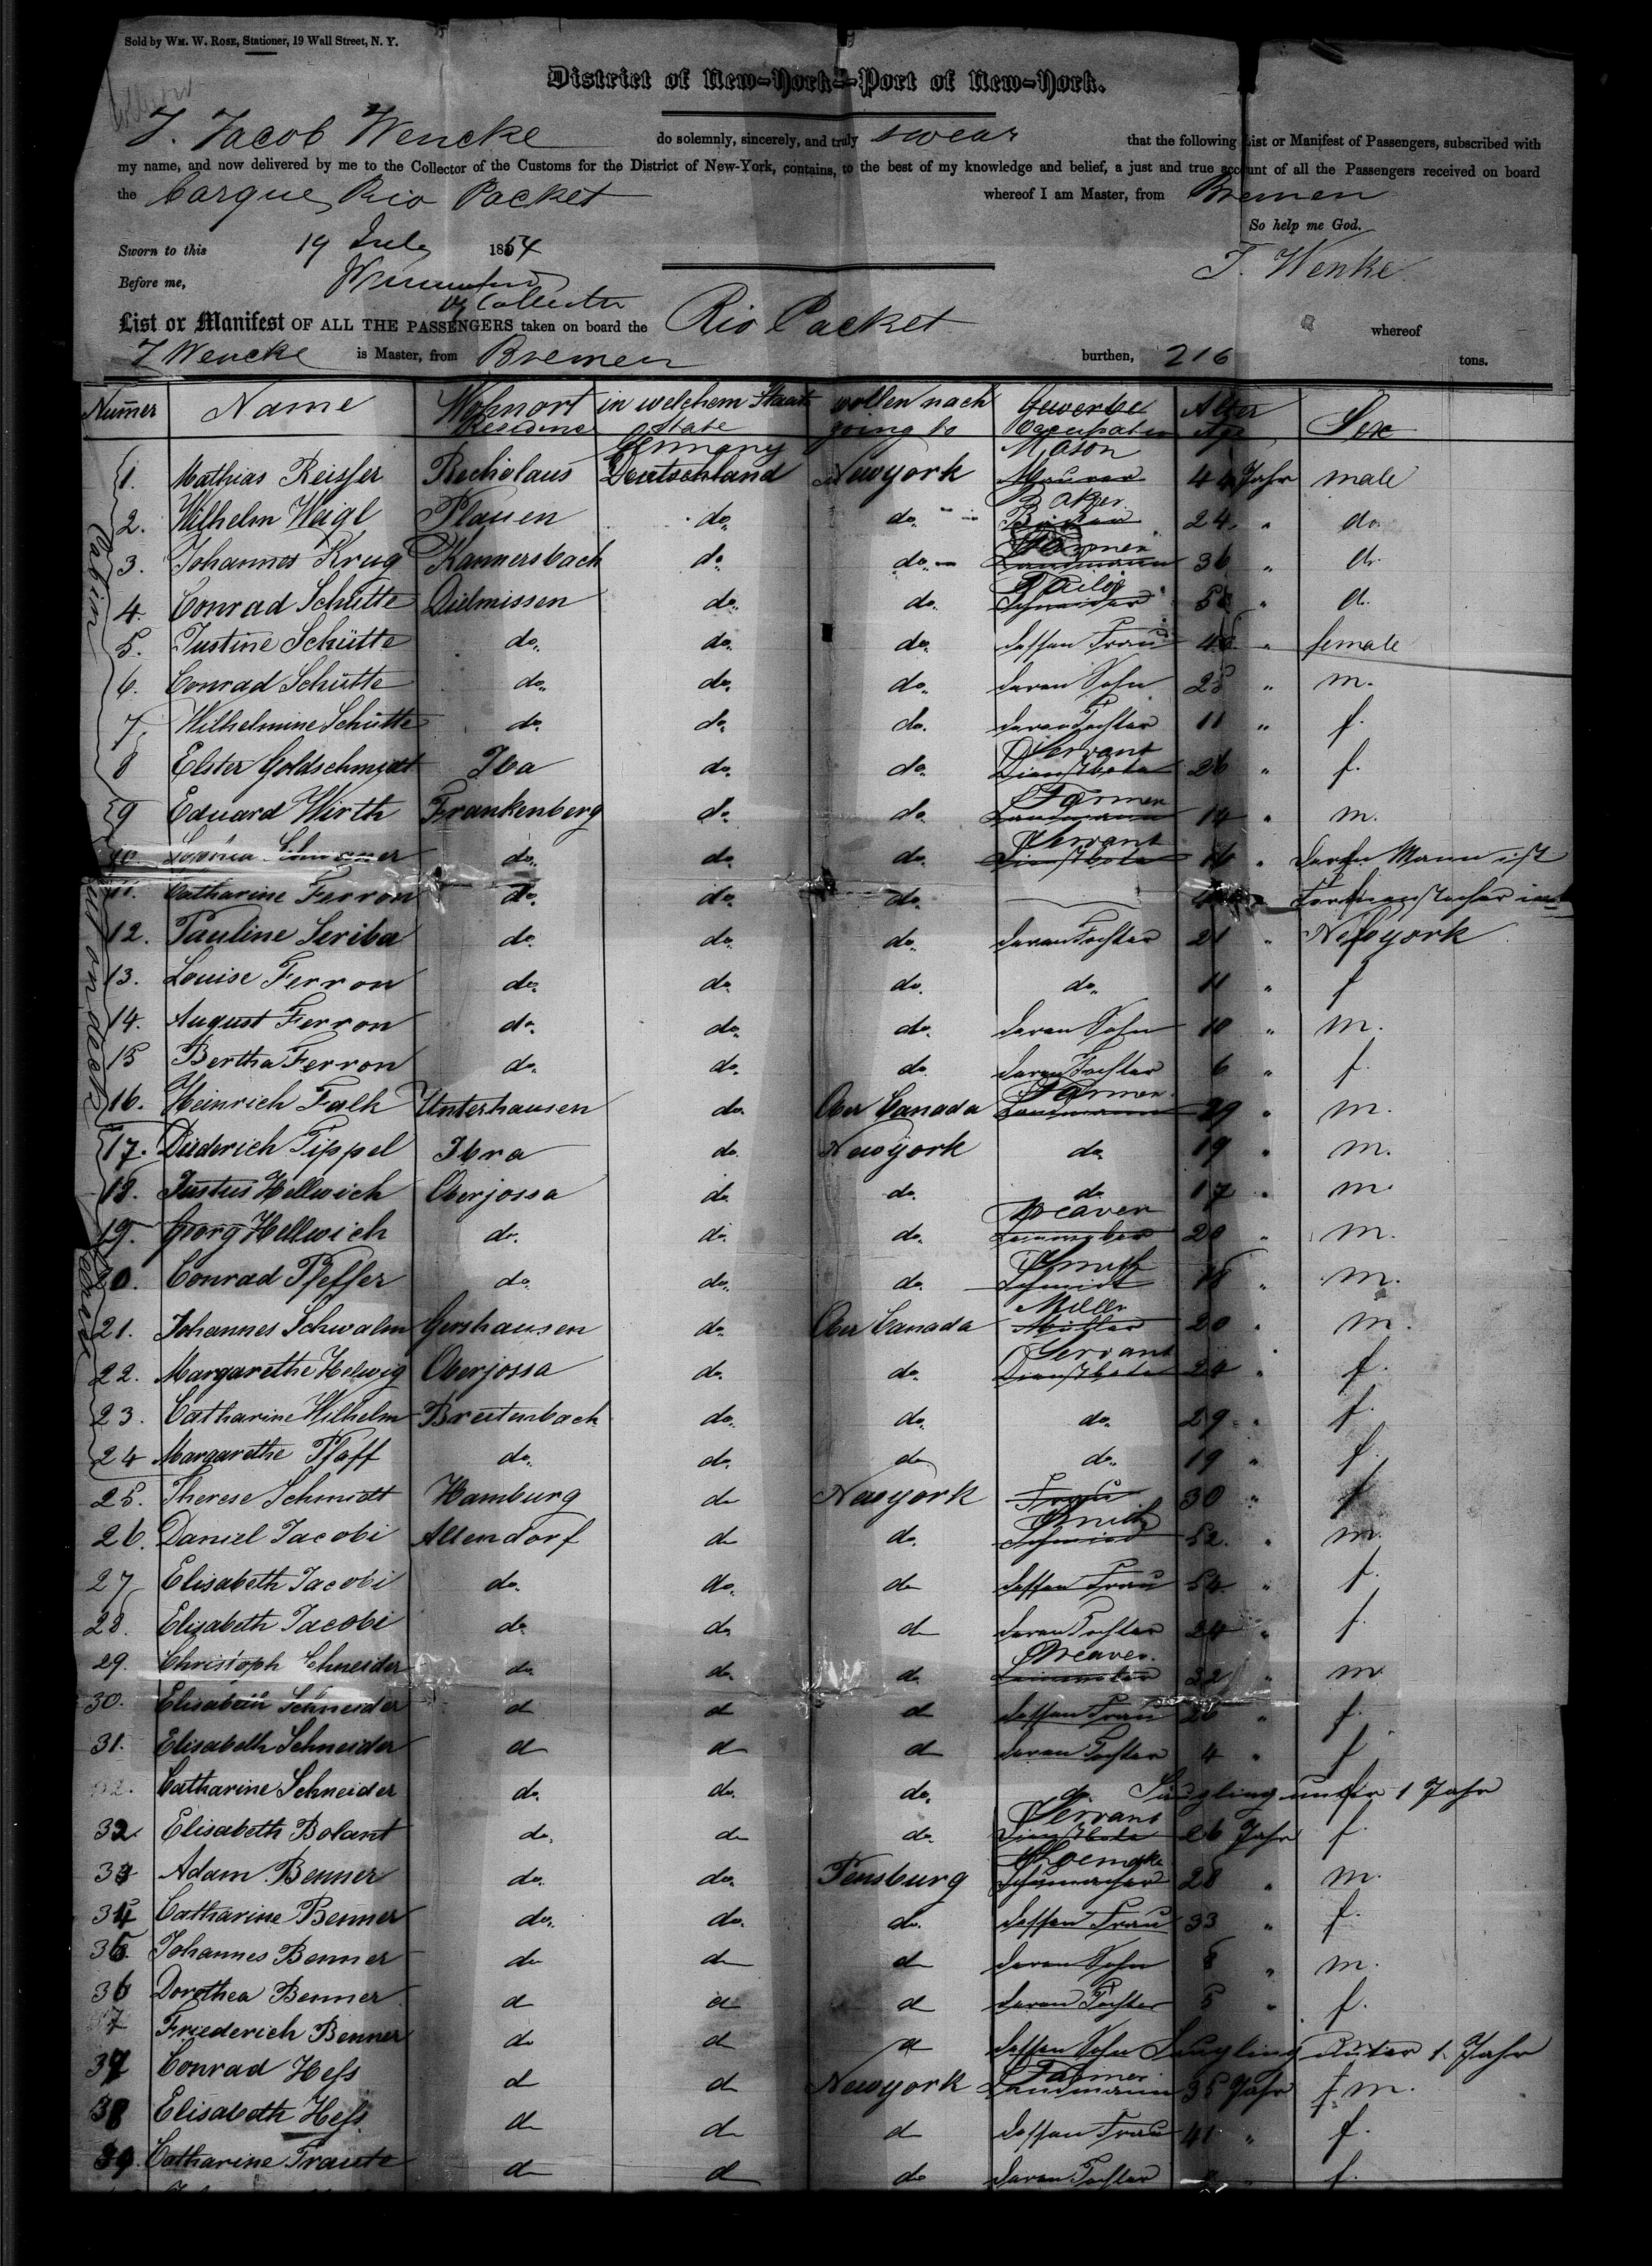 Sold by WM. W. ROSE, Stationer, 19 Wall Street, N. Y.
District of New-York—Port of New-York.
I. Jacob Wencke do solemnly, sincerely, and truly swear that the following List or Manifest of Passengers, subscribed with
my name, and now delivered by me to the Collector of the Customs for the District of New-York, contains, to the best of my knowledge and belief, a just and true account of all the Passengers received on board
the Barque Rio Packet whereof I am Master, from Bremen
So help me God.
Sworn to this 19 July 1854
J. Wenke
Before me,
Dy Collector
List or Manifest OF ALL THE PASSENGERS taken on board the Rio Packet whereof
J Wencke is Master, from Bremen burthen, 216 tons.
Numer Name Wohnort in welchem Staate wollen nach Gewerbe Alter Sex
Residence State going to Occupation Age
Germany Mason
1. Mathias Reisser Deutschland Newyork Maurer 44 Jahr male
Baker
2. Wilhelm Weigl Plauen do. do. Bäcker 24 " do.
Farmer
3. Johannes Krug Kannersbach do do. Landmann 36 " do.
Tailor
4. Conrad Schütte Dielmissen do. do. Schneider " d.
5. Justine Schütte do. do. do. dessen Frau " female
6. Conrad Schütte do. do. do. deren Sohn 25 " m.
7. Wilhelmine Schütte do. do. do. deren Tochter 11 " f.
Servant
8 Elster Goldschmidt Iba do. do. Dienstbote 26 " f.
Farmer
9 Eduard Wirth Frankenberg do. do. Landmann 14 " m.
Servant
10. do. do. do. Dienstbote 16 " deren Mann ist
11. Catharine Ferron do. do. do. " in
12. Pauline Scriba do. do. do. deren Tochter 21 " Newyork
13. Louise Ferron do. do. do. do. 11 " f
14. August Ferron do. do. do. deren Sohn 10 " m.
15 Bertha Ferron do. do. do. deren Tochter 6 " f.
Farmer
16. Heinrich Falk Unterhausen do. Ober Canada Landmann 29 " m.
17. Diederich Tippel Ibra do. Newyork do. 19 " m.
18. Justus Hellwich Oberjossa do. do. do. 17 " m.
Weaver
19. Georg Hellwich do. do. do. Leinweber 20 " m.
Smith
20. Conrad Pfeffer do. do. do. Schmidt 18 " m.
Miller
21. Johannes Schwalm Gershausen do. Ober Canada Müller 20 " m.
Servant
22. Margarethe Helwig Oberjossa do. do. Dienstbote 24 " f.
23. Catharine Wilhelm Breitenbach do. do. do. 29 " f.
24 Margarethe Pfaff do. do. do do. 19 " f.
25. Therese Schmidt Hamburg do Newyork Frau 30 " f
Smith
26. Daniel Jacobi Allendorf do do. Schmied 52 " m.
27 Elisabeth Jacobi do. do. do dessen Frau 54 " f.
28. Elisabeth Jacobi do. do. d deren Tochter 24 " f.
Weaver
29. Christoph Schneider do. do. do. Leinweber 32 " m
30. Elisabeth Schneider d d d dessen Frau 26 " f.
31. Elisabeth Schneider d d d deren Tochter 4 " f
32. Catharine Schneider do. do. do. d. Säugling unter 1 Jahr
Servant
32. Elisabeth Bolant do. do do. Dienstbote 26 Jahr f.
Shoemaker
33 Adam Benner do. do. Pensburg Schumacher 28 " m.
34 Catharine Benner do. do. do. dessen Frau 33 " f.
35. Johannes Benner do do d deren Sohn 8 " m.
36 Dorothea Benner d d d deren Tochter 5 " f.
37 Friederich Benner do d d dessen Sohn Säugling unter 1 Jahr
Farmer
37 Conrad Hess d d Newyork Landmann 35 Jahr m.
38 Elisabeth Hess d d d dessen Frau 41 " f.
39. Catharine Traute d d do deren Tochter " f.
Cabin